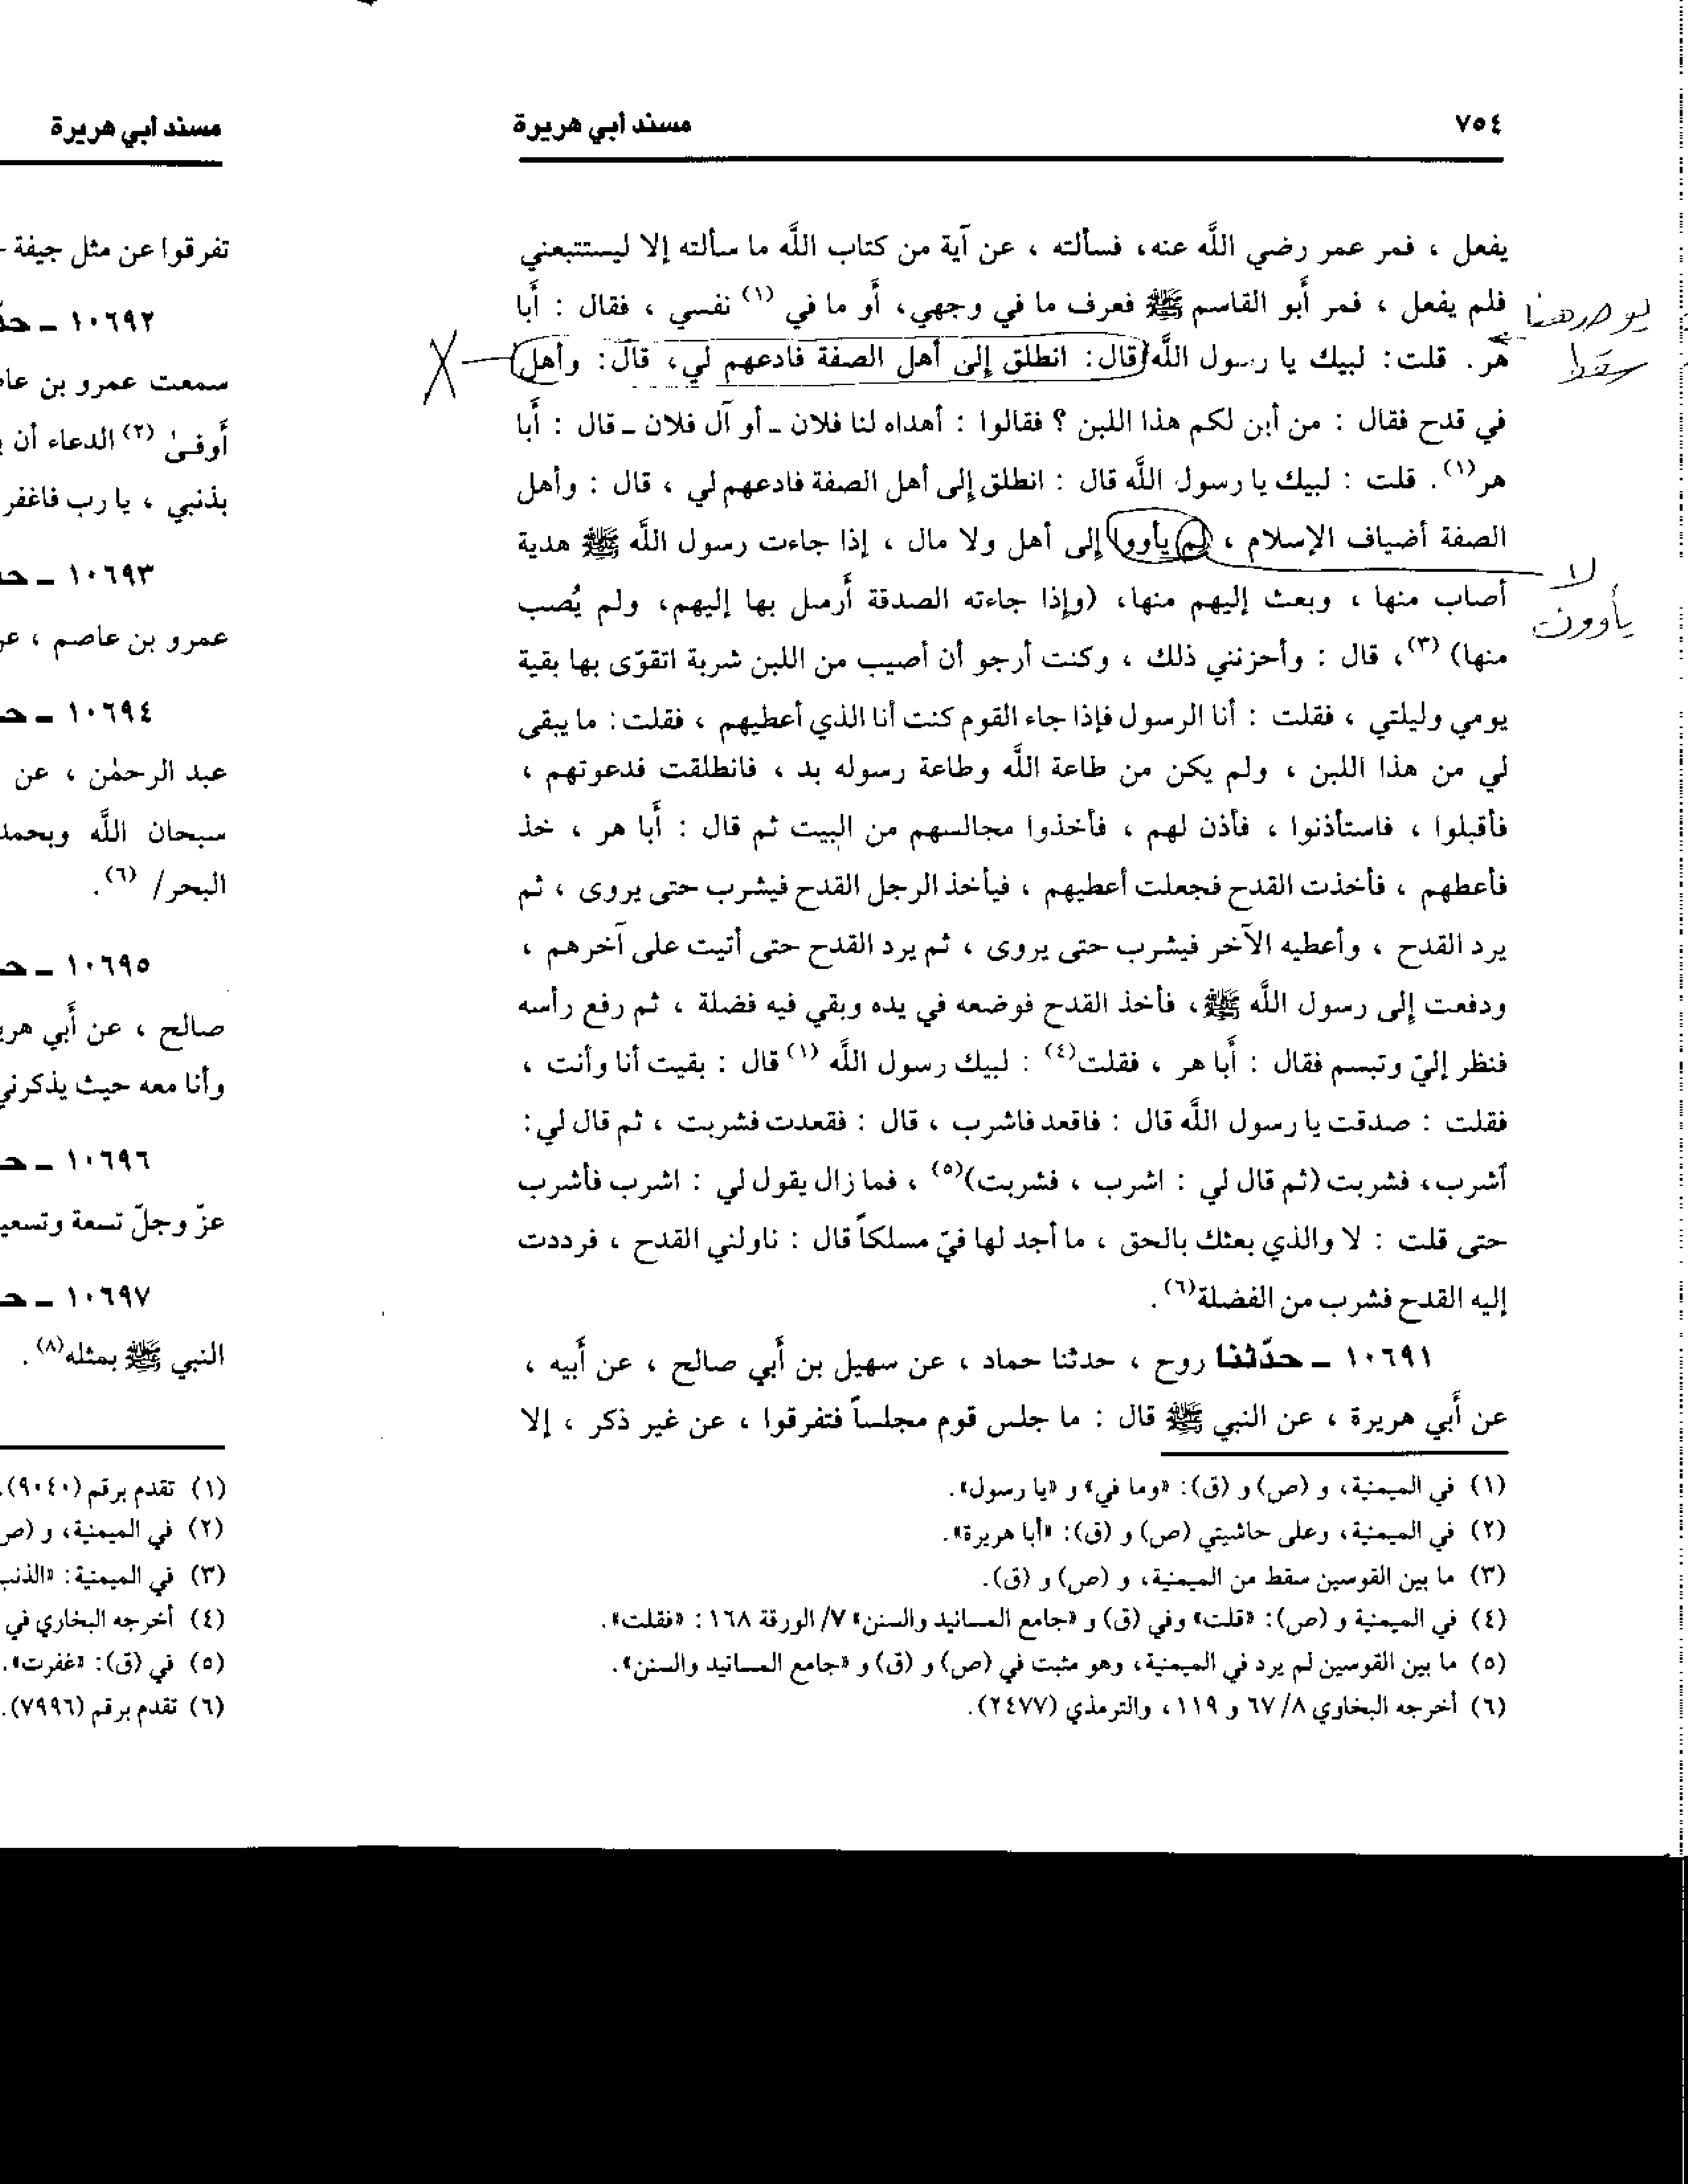 ٧٥٤ مسند أبي هريرة
يفعل ، فمر عمر رضي اللَّه عنه، فسألته ، عن آية من كتاب اللَّه ما سألته إلا ليستتبعني
فلم يفعل ، فمر أَبو القاسم ﷺ فعرف ما في وجهي، أَو ما في (١) نفسي ، فقال : أَبا
هر. قلت: لبيك يا رسول اللَّه قال: انطلق إلى أهل الصفة فادعهم لي، قال: وأهل
في قدح فقال : من أين لكم هذا اللبن ؟ فقالوا : أهداه لنا فلان ـ أو آل فلان ـ قال : أَبا
هر(١). قلت : لبيك يا رسول اللَّه قال : انطلق إلى أهل الصفة فادعهم لي ، قال : وأهل
الصفة أضياف الإسلام ، لم يأووا إلى أهل ولا مال ، إذا جاءت رسول اللَّه ﷺ هدية
أصاب منها ، وبعث إليهم منها، (وإذا جاءته الصدقة أَرسل بها إليهم، ولم يُصب
منها) (٣)، قال : وأحزنني ذلك ، وكنت أرجو أن أصيب من اللبن شربة اتقوّى بها بقية
يومي وليلتي ، فقلت : أنا الرسول فإذا جاء القوم كنت أنا الذي أعطيهم ، فقلت: ما يبقى
لي من هذا اللبن ، ولم يكن من طاعة اللَّه وطاعة رسوله بد ، فانطلقت فدعوتهم ،
فأقبلوا ، فاستأذنوا ، فأذن لهم ، فأخذوا مجالسهم من البيت ثم قال : أَبا هر ، خذ
فأعطهم ، فأخذت القدح فجعلت أعطيهم ، فيأخذ الرجل القدح فيشرب حتى يروى ، ثم
يرد القدح ، وأعطيه الآخر فيشرب حتى يروى ، ثم يرد القدح حتى أتيت على آخرهم ،
ودفعت إلى رسول اللَّه ﷺ، فأخذ القدح فوضعه في يده وبقي فيه فضلة ، ثم رفع رأسه
فنظر إليّ وتبسم فقال : أَبا هر ، فقلت(٤) : لبيك رسول اللَّه (١) قال : بقيت أنا وأنت ،
فقلت : صدقت يا رسول اللَّه قال : فاقعد فاشرب ، قال : فقعدت فشربت ، ثم قال لي:
أشرب، فشربت (ثم قال لي : اشرب ، فشربت)(٥) ، فما زال يقول لي : اشرب فأشرب
حتى قلت : لا والذي بعثك بالحق ، ما أجد لها فيّ مسلكاً قال : ناولني القدح ، فرددت
إليه القدح فشرب من الفضلة(٦).
١٠٦٩١ ـ حدّثنا روح ، حدثنا حماد ، عن سهيل بن أَبي صالح ، عن أَبيه ،
عن أَبي هريرة ، عن النبي ﷺ قال : ما جلس قوم مجلساً فتفرقوا ، عن غير ذكر ، إلا
(١) في الميمنية، و (ص) و (ق): «وما في» و «يا رسول».
(٢) في الميمنية، وعلى حاشيتي (ص) و (ق): «أبا هريرة».
(٣) ما بين القوسين سقط من الميمنية، و (ص) و (ق).
(٤) في الميمنية و (ص): «قلت» وفي (ق) و «جامع المسانيد والسنن» ٧/ الورقة ١٦٨ : «فقلت».
(٥) ما بين القوسين لم يرد في الميمنية، وهو مثبت في (ص) و (ق) و «جامع المسانيد والسنن».
(٦) أخرجه البخاري ٨/ ٦٧ و ١١٩، والترمذي (٢٤٧٧).
هنا
سقط
لا
يأوون
مسند أبي هريرة
تفرقوا عن مثل جيفة
١٠٦٩٢ ـ
سمعت عمرو بن
أَوفىٰ (٢) الدعاء أن
بذنبي ، يا رب فاغفر
١٠٦٩٣ ـ
عمرو بن عاصم ،
١٠٦٩٤ ـ
عبد الرحمٰن ، عن
سبحان اللَّه
البحر/ (٦).
١٠٦٩٥ ـ
صالح ، عن أَبي
وأنا معه حيث
١٠٦٩٦ ـ
عزّ وجلّ تسعة
١٠٦٩٧ ـ
النبي ﷺ بمثله(٨).
(١) تقدم برقم (٩٠٤٠).
(٢) في الميمنية، و
(٣) في الميمنية:
(٤) أخرجه البخاري في
(٥) في (ق): «غفرت».
(٦) تقدم برقم (٧٩٩٦).